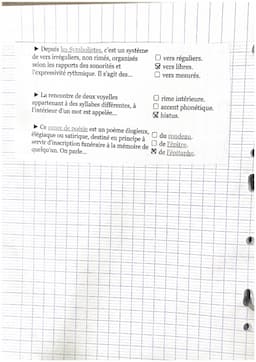 ► Depuis les Symbolistes, c'est un système
de vers irréguliers, non rimés, organisés
selon les rapports des sonorités et
l'expressivité rythmique. Il s'agit des...
☐ vers réguliers.
☒ vers libres.
☐ vers mesurés.
► La rencontre de deux voyelles
appartenant à des syllabes différentes, à
l'intérieur d'un mot est appelée...
☐ rime intérieure.
☐ accent phonétique.
☒ hiatus.
► Ce genre de poésie est un poème élogieux,
élégiaque ou satirique, destiné en principe à
servir d'inscription funéraire à la mémoire de
quelqu'un. On parle...
☐ du rondeau.
☐ de l'épître.
☒ de l'épitaphe.